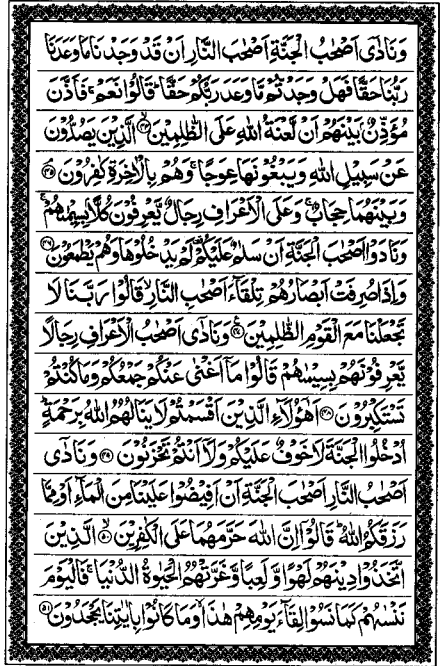 وَنَادٰٓى اَصْحٰبُ الْجَنَّةِ اَصْحٰبَ النَّارِ اَنْ قَدْ وَجَدْنَا مَا وَعَدَنَا
رَبُّنَا حَقًّا فَهَلْ وَجَدْتُّمْ مَّا وَعَدَ رَبُّكُمْ حَقًّا ؕ قَالُوْا نَعَمْ ۚ فَاَذَّنَ
مُؤَذِّنٌۢ بَيْنَهُمْ اَنْ لَّعْنَةُ اللّٰهِ عَلَى الظّٰلِمِيْنَ ۙ﴿۴۴﴾ الَّذِيْنَ يَصُدُّوْنَ
عَنْ سَبِيْلِ اللّٰهِ وَيَبْغُوْنَهَا عِوَجًا ۚ وَهُمْ بِالْاٰخِرَةِ كٰفِرُوْنَ ﴿۴۵﴾
وَبَيْنَهُمَا حِجَابٌ ۚ وَعَلَى الْاَعْرَافِ رِجَالٌ يَّعْرِفُوْنَ كُلًّاۢ بِسِيْمٰىهُمْ ۚ
وَنَادَوْا اَصْحٰبَ الْجَنَّةِ اَنْ سَلٰمٌ عَلَيْكُمْ ۟ لَمْ يَدْخُلُوْهَا وَهُمْ يَطْمَعُوْنَ ﴿۴۶﴾
وَاِذَا صُرِفَتْ اَبْصَارُهُمْ تِلْقَآءَ اَصْحٰبِ النَّارِ ۙ قَالُوْا رَبَّنَا لَا
تَجْعَلْنَا مَعَ الْقَوْمِ الظّٰلِمِيْنَ ﴿۴۷﴾ وَنَادٰٓى اَصْحٰبُ الْاَعْرَافِ رِجَالًا
يَّعْرِفُوْنَهُمْ بِسِيْمٰىهُمْ قَالُوْا مَآ اَغْنٰى عَنْكُمْ جَمْعُكُمْ وَمَا كُنْتُمْ
تَسْتَكْبِرُوْنَ ﴿۴۸﴾ اَهٰٓؤُلَآءِ الَّذِيْنَ اَقْسَمْتُمْ لَا يَنَالُهُمُ اللّٰهُ بِرَحْمَةٍ ؕ
اُدْخُلُوا الْجَنَّةَ لَا خَوْفٌ عَلَيْكُمْ وَلَآ اَنْتُمْ تَحْزَنُوْنَ ﴿۴۹﴾ وَنَادٰٓى
اَصْحٰبُ النَّارِ اَصْحٰبَ الْجَنَّةِ اَنْ اَفِيْضُوْا عَلَيْنَا مِنَ الْمَآءِ اَوْ مِمَّا
رَزَقَكُمُ اللّٰهُ ؕ قَالُوْٓا اِنَّ اللّٰهَ حَرَّمَهُمَا عَلَى الْكٰفِرِيْنَ ۙ﴿۵۰﴾ الَّذِيْنَ
اتَّخَذُوْا دِيْنَهُمْ لَهْوًا وَّلَعِبًا وَّغَرَّتْهُمُ الْحَيٰوةُ الدُّنْيَا ۚ فَالْيَوْمَ
نَنْسٰىهُمْ كَمَا نَسُوْا لِقَآءَ يَوْمِهِمْ هٰذَا ۙ وَمَا كَانُوْا بِاٰيٰتِنَا يَجْحَدُوْنَ ﴿۵۱﴾